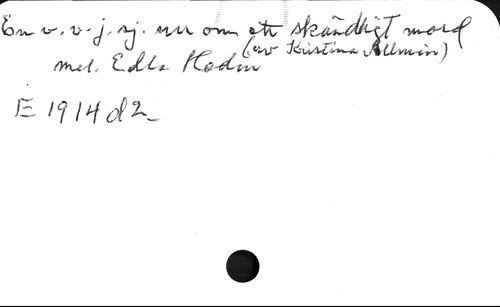 En v. v. j. sj. nu om ett skändligt mord
(av Kristina Allmin)
mel. Edla Hedin
E 1914 d2